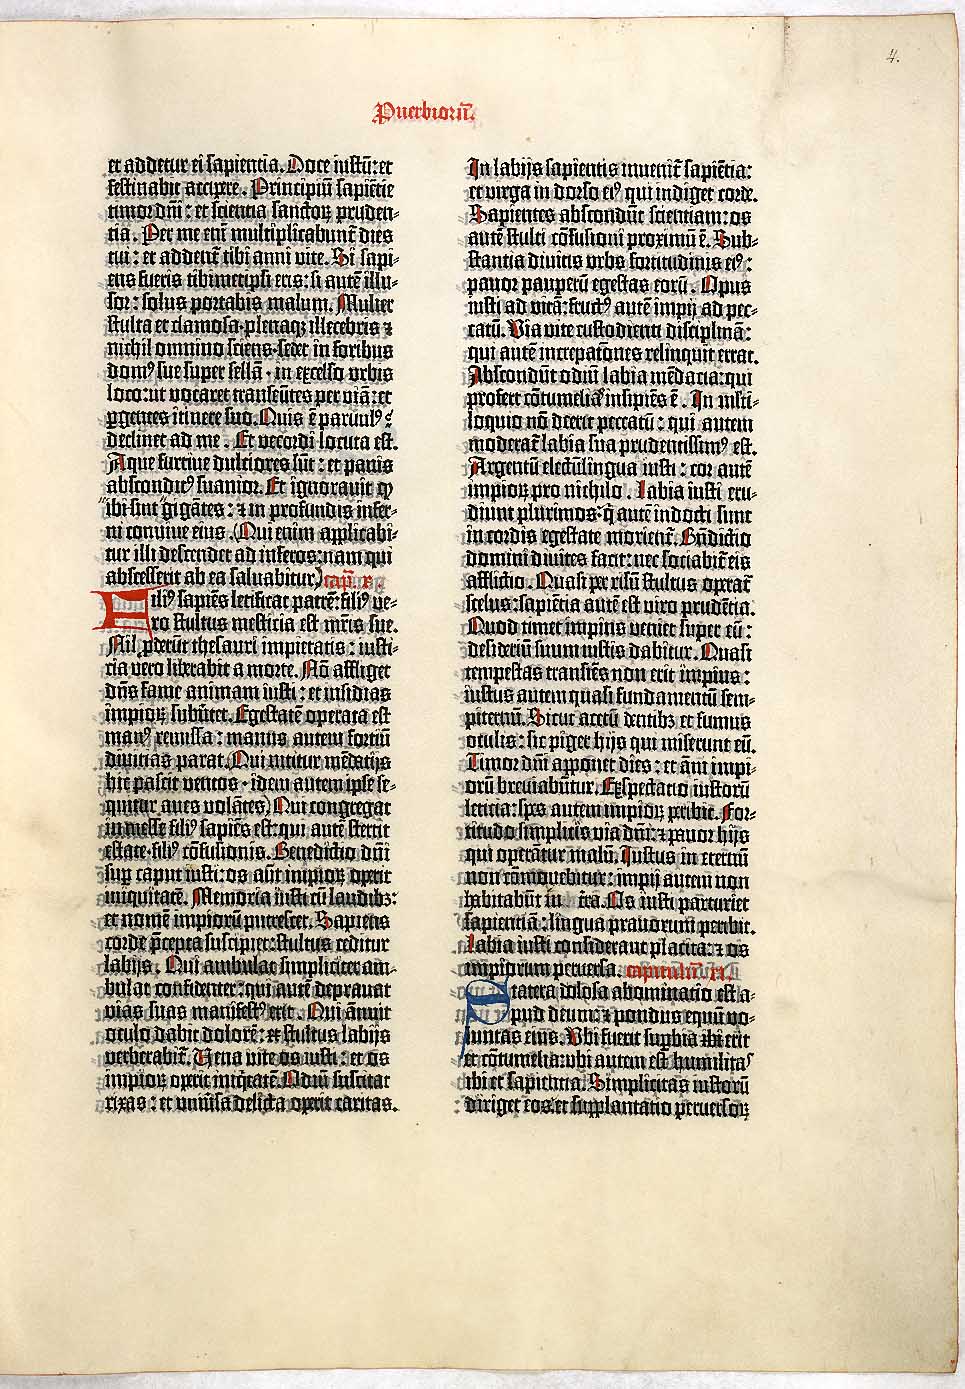 4.
Puerbiorū.
et addetur ei sapientia. Doce iustū: et
festinabit accipere. Principiū sapiētie
timor dñi: et scientia sanctoꝝ pruden-
tia. Per me enī multiplicabunt̄ dies
tui: et addent̄ tibi anni vite. Si sapi-
ens fueris tibimetipsi eris: si autē illu-
sor: solus portabis malum. Mulier
stulta et clamosa·plenaqꝫ illecebris ⁊
nichil omnino sciens·sedet in foribus
domꝰ sue super sellā · in excelso vrbis
loco: ut vocaret transeūtes per viā: et
ꝑgentes itinere suo. Quis ē paruulꝰ
declinet ad me. Et vecordi locuta est.
Aque furtiue dulciores sūt: et panis
absconditꝰ suauior. Et ignorauit ꝙ
ibi sint gigātes: ⁊ in profundis infer-
ni conuiue eius. Qui enim applicabi-
tur illi descendet ad inferos: nam qui
abscesserit ab ea saluabitur. capͫ. x.
Filiꝰ sapiēs letificat patrē: filiꝰ ve-
ro stultus mesticia est mr̄is sue.
Nil ꝓderūt thesauri impietatis: iusti-
cia vero liberabit a morte. Nō affliget
dñs fame animam iusti: et insidias
impioꝝ subūtet. Egestatē operata est
manꝰ remissa: manus autem fortiū
diuitias parat. Qui nititur mēdatijs
hic pascit ventos · idem autem ipse se-
quitur aues volātes. Qui congregat
in messe filiꝰ sapiēs est: qui autē stertit
estate·filiꝰ cōfusionis. Benedictio dñi
suꝑ caput iusti: os aūt impioꝝ oꝑit
iniquitatē. Memoria iusti cū laudibꝫ:
et nomē impiorū putrescet. Sapiens
corde p̄cepta suscipiet: stultus ceditur
labijs. Qui ambulat simpliciter am-
bulat confidenter: qui autē deprauat
vias suas manifestꝰ erit. Qui ānuit
oculo dabit dolorē: et stultus labijs
verberabit̄. Vena vite os iusti: et os
impioꝝ operit iniq̄tatē. Odiū suscitat
rixas: et vniūsa delicta operit caritas.
In labijs sapientis inuenit̄ sapiētia:
et virga in dorso eiꝰ qui indiget corde.
Sapientes abscondūt scientiam: os
autē stulti cōfusioni proximū ē. Sub-
stantia diuitis vrbs fortitudinis eiꝰ:
pauor pauperū egestas eorū. Opus
iusti ad vitā: fructꝰ autē impij ad pec-
catū. Via vite custodienti disciplinā:
qui autē increpatōnes relinquit errat.
Abscondūt odiū labia mēdacia: qui
profert cōtumeliā insipiēs ē. In multi-
loquio nō deerit peccatū: qui autem
moderat̄ labia sua prudentissimꝰ est.
Argentū electū lingua iusti: cor autē
impioꝝ pro nichilo. Labia iusti eru-
diunt plurimos: q̄ autē indocti sunt
in cordis egestate morient̄. Bn̄dictio
domini diuites facit: nec sociabit̄ eis
afflictio. Quasi per risū stultus operat̄
scelus: sapiētia autē est viro prudētia.
Quod timet impius veniet super eū:
desideriū suum iustis dabitur. Quasi
tempestas transiēs non erit impius:
iustus autem quasi fundamentū sem-
piternū. Sicut acetū dentibꝫ et fumus
oculis: sic piger hijs qui miserunt eū.
Timor dñi apponet dies: et āni impi-
orū breuiabūtur. Exspectatio iustorū
leticia: spes autem impioꝝ peribit. For-
titudo simplicis via dñi: ⁊ pauor hijs
qui operātur malū. Iustus in eternū
non cōmouebitur: impij autem non
habitabūt in t̄ra. Os iusti parturiet
sapientiā: lingua prauorum peribit.
Labia iusti considerant placita: ⁊ os
impiorum peruersa. capitulū. xi.
Statera dolosa abominatio est a-
pud deum: ⁊ pondus equū vo-
luntas eius. Vbi fuerit suꝑbia ibi erit
et cōtumelia: vbi autem est humilitas
ibi et sapientia. Simplicitas iustorū
diriget eos: et supplantatio peruersoꝝ